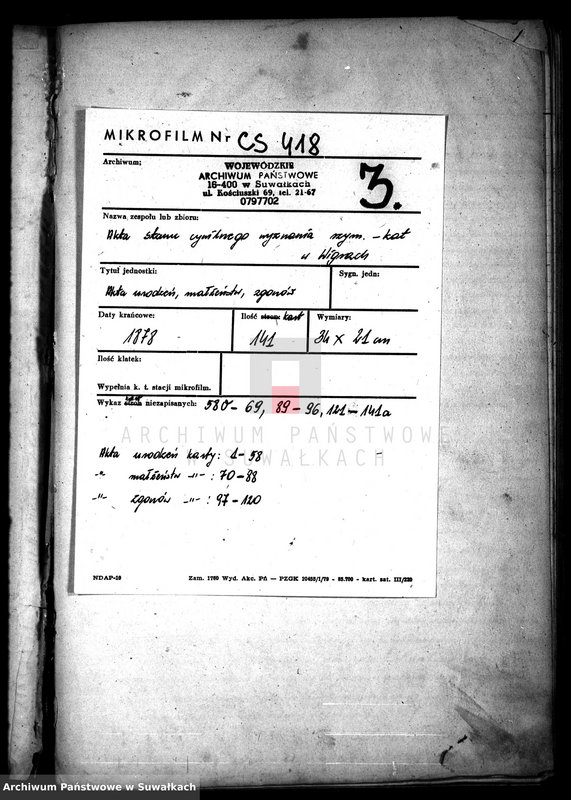 MIKROFILM Nr CS 418
Archiwum:
WOJEWÓDZKIE
ARCHIWUM PAŃSTWOWE
16-400 w Suwałkach
ul. Kościuszki 69, tel. 21-67
0797702
3.
Nazwa zespołu lub zbioru:
Akta stanu cywilnego wyznania rzym.-kat
w Wigrach
Tytuł jednostki:
Sygn. jedn:
Akta urodzeń, małżeństw, zgonów
Daty krańcowe:
Ilość stron kart
Wymiary:
1878
141
34 x 21 cm
Ilość klatek:
Wypełnia k. t. stacji mikrofilm.
Wykaz stron niezapisanych: 58v-69, 89-96, 121-141a
ARCHIWUM PAŃSTWOWE
W SUWAŁKACH
Akta urodzeń karty: 1-58
-"- małżeństw -"-: 70-88
-"- zgonów -"-: 97-120
NDAP-10
Zam. 1760 Wyd. Akc. Pń — PZGK 10455/1/79 - 85.700 - kart. sat. III/220
Archiwum Państwowe w Suwałkach